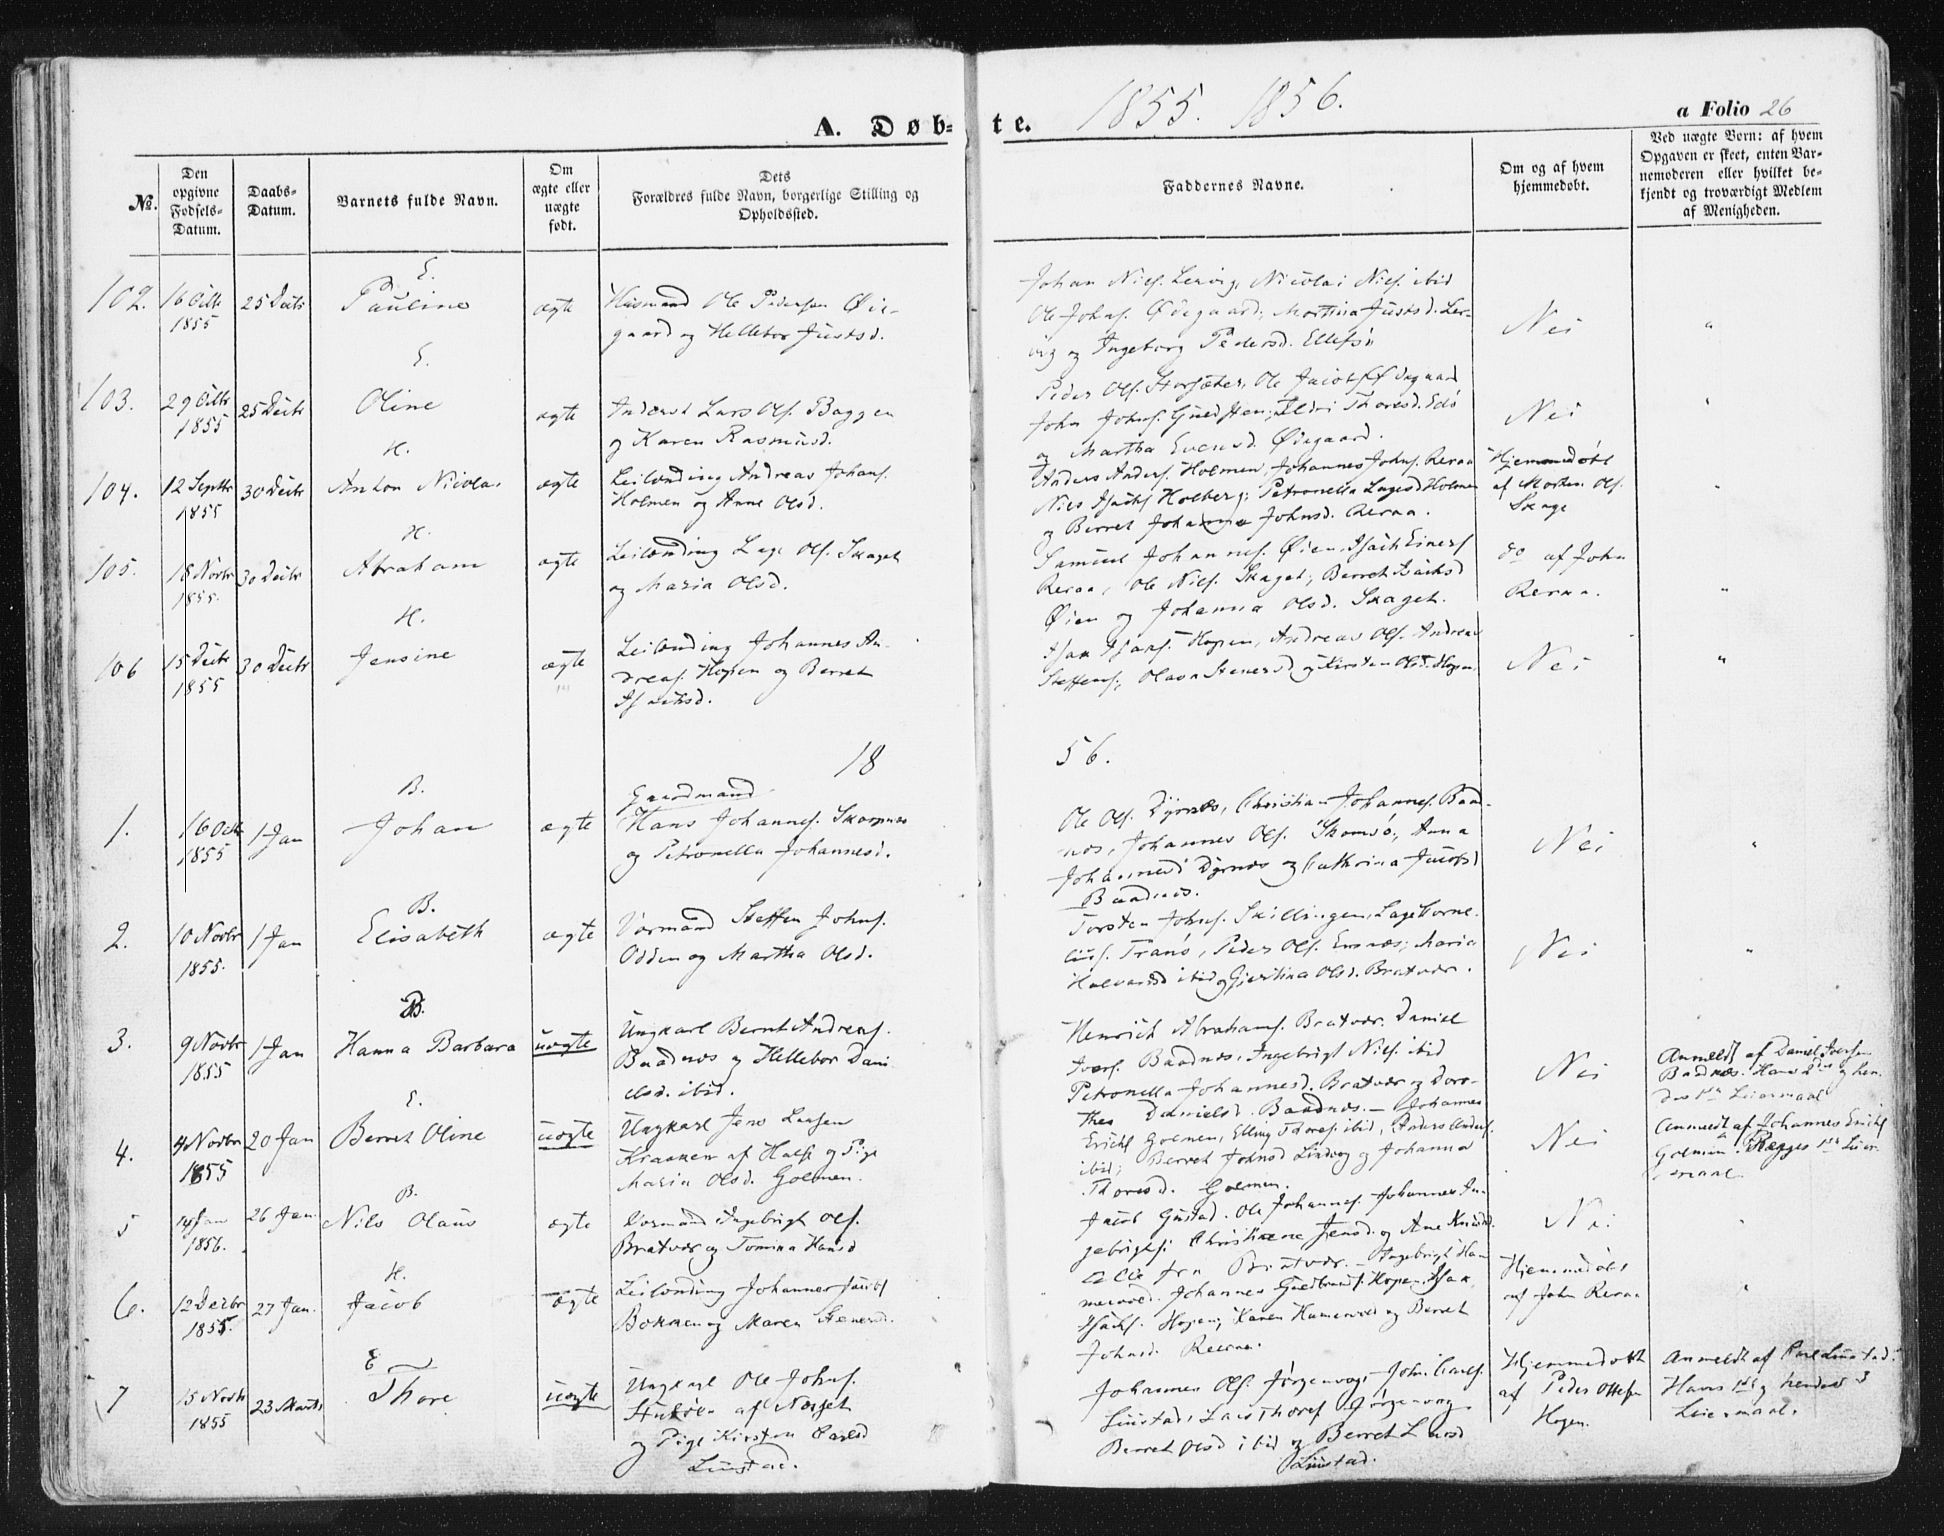 1855. 1856.
A. Døb- te.
a Folio 26
No.
Den opgivne Fødsels-Datum.
Daabs-Datum.
Barnets fulde Navn.
Om ægte eller uægte født.
Dets Forældres fulde Navn, borgerlige Stilling og Opholdssted.
Faddernes Navne.
Om og af hvem hjemmedøbt.
Ved uægte Børn: af hvem Opgaven er skeet, enten Barnemoderen eller hvilket bekjendt og troværdigt Medlem af Menigheden.
E.
102. 16 Octb 1855 25 Decbr Pauline ægte
Huusmand Ole Pedersen Øie-
gaard og Hellebor Justsd.
Johan Niels. Lervig, Nicolai Niels. ibid
Ole Johns. Ødegaard; Martina Justsd. Ler-
vig og Ingeborg Pedersd.
Nei "
E.
103. 29 Octbr 1855 25 Decbr Oline ægte
Lars Ols. Baggen
og Karen Rasmusd.
Peder Ols. Storsæter, Ole Jacobs Ødegaard
John Johns. Thoresd. Edø
og Martha Evensd. Ødegaard.
Nei "
H.
104. 12 Septbr 1855 30 Decbr Anton Nicolai ægte
Leilænding Andreas Johans.
Holmen og Anne Olsd.
Anders Anders. Holmen, Johannes Johns. Reraa
Niels Isachs Holberg; Petronella Lagesd Holmen
og Berret Johanna Johnsd. Reraa.
Hjemmedøbt
af Morten Ols.
Skage
"
H.
105. 18 Novbr 1855. 30 Decbr Abraham ægte
Leilænding Lage Ols. Skaget
og Maria Olsd.
Samuel Johannes. Øien, Isach Einers
Reraa, Ole Niels. Skaget; Berret Isachsd
Øien og Johanna Olsd. Skaget.
do af John
Reraa.
"
H.
106 15 Decbr 1855 30 Decbr Jensine ægte
Leilænding Johannes An-
dreas. Hopen og Berret
Isachsd.
Isak Isaks. Hopen, Andreas Ols. Andreas
Steffens; Olava Stenersd og Kirsten Olsd. Hopen
Nei "
18 56.
B.
1. 16 Octb 1855 1 Jan Johan ægte
Gaardmand
Hans Johannes. Skarpnes
og Petronella Johannesd.
Ole Ols. Dyrnæs, Christian Johannes. Baad-
næs, Johannes Ols. Skomsø; Anna
Johannesd Dyrnæs og Cathrina Jacobsd
Baadnæs.
Nei "
B.
2. 10 Novbr 1855. 1 Jan Elisabeth ægte
Vormand Steffen Johns.
Odden og Martha Olsd.
Torsten Johns. Skillingen, Lage Corne-
lius. Tranø, Peder Ols. Ensnæs; Maria
Halvorsd ibid og Gjertina Olsd. Bratvær.
Nei "
B.
3. 9 Novbr 1855 1 Jan Hanna Barbara uægte
Ungkarl Bernt Andreas.
Baadnæs og Hellebor Dani-
elsd. ibid.
Henrich Abrahams. Bratvær. Daniel
Ivers. Baadnæs, Ingebrigt Niels. ibid
Petronella Johannesd. Bratvær og Doro-
thea Danielsd. Baadnæs. —
Nei
Anmeldt af Daniel Iversen
Baadnæs. Hans 2det og hen-
des 1ste Leiermaal
E.
4. 4 Novbr 1855 20 Jan Berret Oline uægte
Ungkarl Jens Larsen
Kraaken af Halse og Pige
Maria Olsd. Golmen.
Johannes
Erichs Golmen, Elling Thores. ibid, Anders Anders.
ibid; Berret Johnsd Lindvog og Johanna
Thoresd. Golmen.
Nei
Anmeldt af Johannes Erichs
Golmen. Begges 1ste Leier-
maal
B.
5 14 Jan 1856. 26 Jan. Nils Olaus ægte
Vormand Ingebrigt Ols.
Bratvær og Tomina Hansd
Jacob Gustad. Ole Johannes. Johannes In-
gebrigts; Christianne Jensd. og Ane Knudsd.
alle fra Bratvær. —
Nei "
H.
6. 12 Decbr 1855. 27 Jan. Jacob ægte
Leilænding Johannes Jacobs
Bokken og Maren Stenersd.
Ingebrigt Ham-
mervold. Johannes Gudbrands. Hopen, Isak
Isachs. Hopen; Karen Hamervold og Berret
Johnsd. Reeraa.
Hjemmedøbt
af John Reraa
"
E
7 15 Novbr 1855 23 Marts Thore uægte
Ungkarl Ole Johns.
og Pige Kirsten Carlsd
Liustad.
Johannes Ols. Jørgenvog, John Carls.
Liustad, Lars Thores Jørgenvog,
Berret Olsd ibid og Berret Larsd
Liustad.
Hjemmedøbt
af Peder Ottesen
Hogen.
Anmeldt af Carl Liustad.
Hans 1ste og hendes 3
Leiermaal.